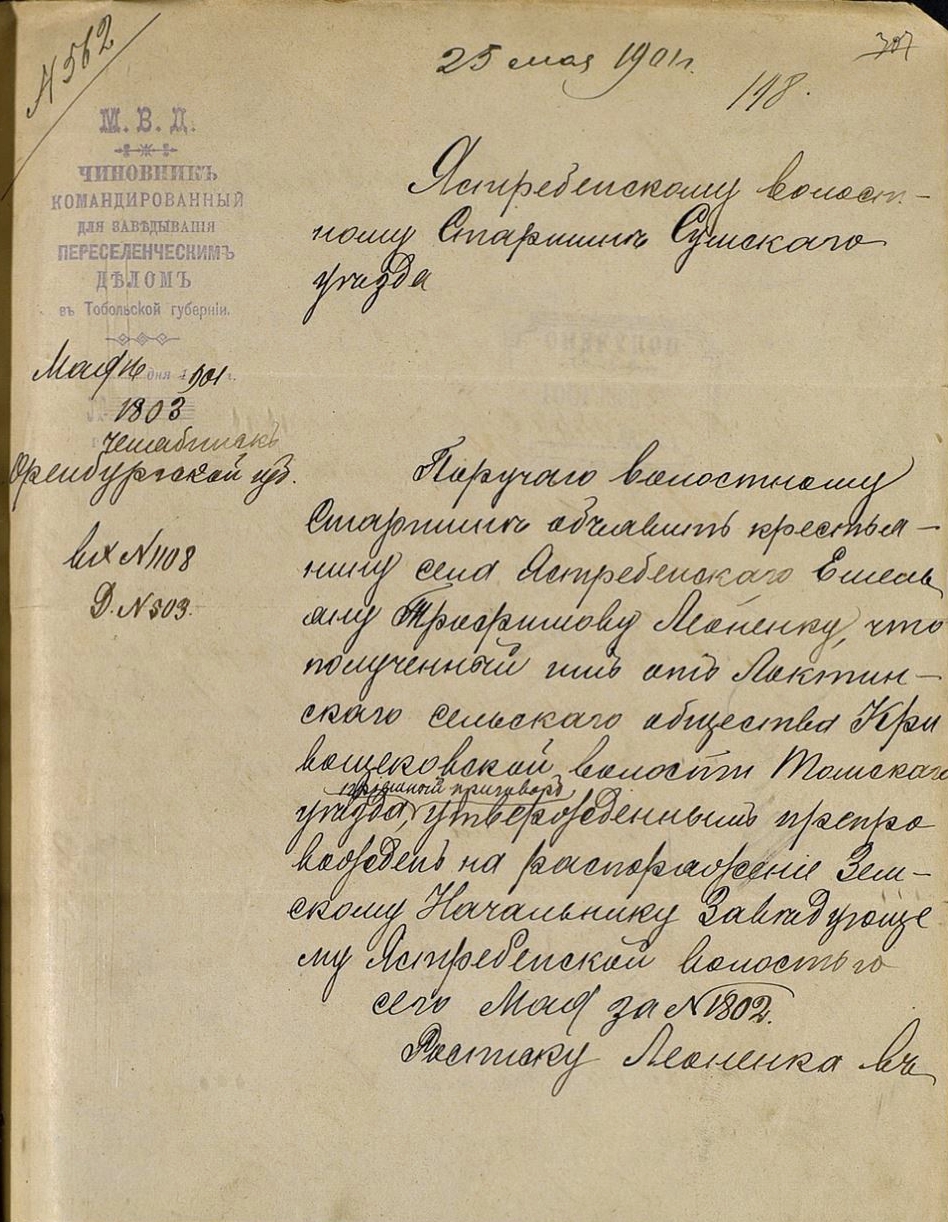 N 562
25 мая 1901 г.
707
118.
М. В. Д.
ЧИНОВНИКЪ
КОМАНДИРОВАННЫЙ
ДЛЯ ЗАВѢДЫВАНІЯ
ПЕРЕСЕЛЕНЧЕСКИМЪ
ДѢЛОМЪ
въ Тобольской губерніи.
Мая дня 1901 г.
1803
Челябинскъ
Оренбургской губ.
вх N 1108
Д. N 503.
Ястребенскому волост-
ному Старшинѣ Сумскаго
уѣзда
Поручаю волостному
Старшинѣ объявить крестья-
нину села Ястребенскаго Емель
яну Трофимову Леоненку, что
полученный имъ отъ Локтин-
скаго сельскаго общества Кри
вощековской волости Томскаго
уѣзда, пріемный приговоръ утвержденнымъ препро
вожденъ на распоряженіе Зем-
скому Начальнику Завѣдующе
му Ястребенской волостью
сего Мая за N 1802.
Росписку Леоненка въ